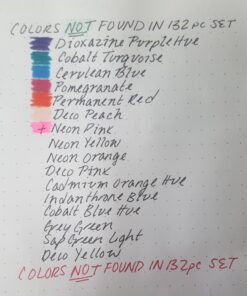 COLORS NOT FOUND IN 132 PC SET
Dioxazine Purple Hue
Cobalt Turquoise
Cerulean Blue
Pomegranate
Permanent Red
Deco Peach
+ Neon Pink
Neon Yellow
Neon Orange
Deco Pink
Cadmium Orange Hue
Indanthrone Blue
Cobalt Blue Hue
Grey Green
Sap Green Light
Deco Yellow
COLORS NOT FOUND IN 132pc SET